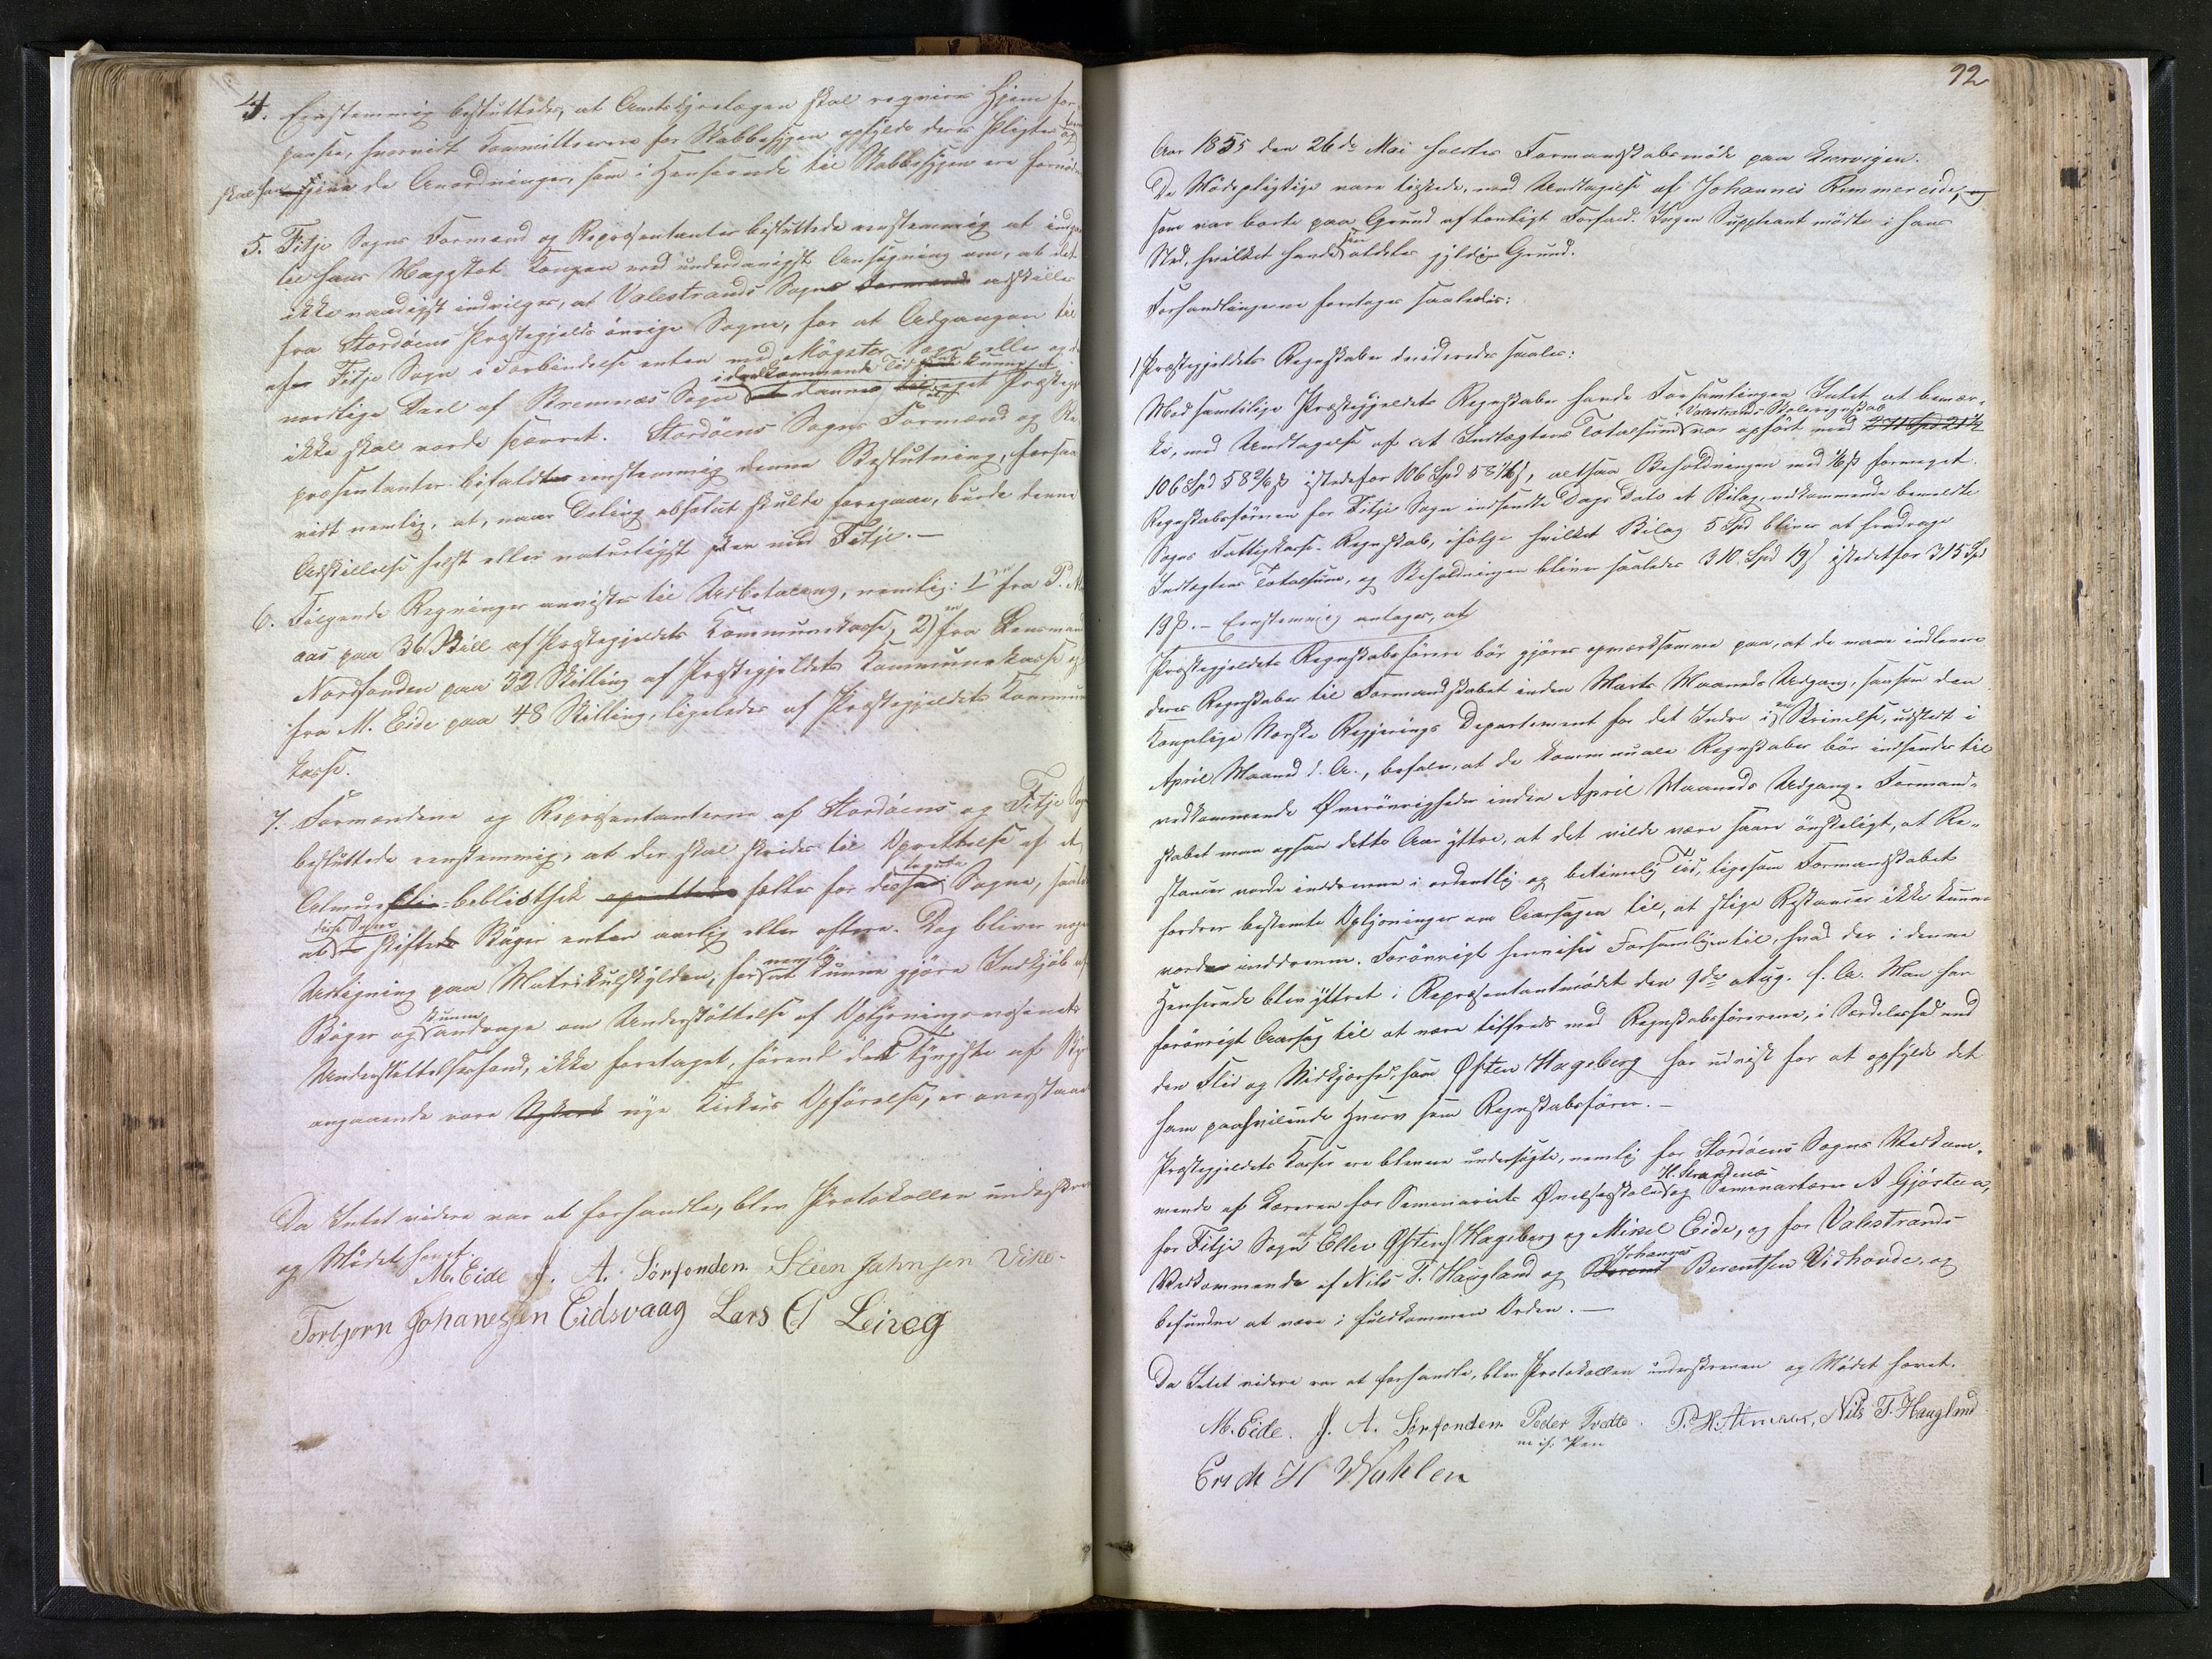 4. Eenstemmig besluttedes, at Amtsdyrelægen skal requirere Hjem for
hvorvidt Committeerne for Skabbesygen opfylde deres Pligter og
de Anordninger, som i Henseende til Skabbesygen ere fornød
5. Fitje Sogns Formænd og Repræsentanter besluttede eenstemmig at indgaa
til hans Majestæt Kongen med underdanigst Ansøgning om, at det
ikke naadigst indvilges, at Valestrands Sogn Formænd adskilles
fra Stordöens Præstegjelds övrige Sogne, for at Adgangen til
af Fitje Sogn i Forbindelse enten med Mögster Sogn eller og d
i vedkommende Tid kunne et
nordlige Deel af Bremnæs Sogn at danne til eget Præsteg
ikke skal vorde spærret. Stordöens Sogns Formænd og Re
præsentanter bifaldt eenstemmig denne Beslutning, forsaa
vidt nemlig, at, naar Deling absolut skulde foregaae, burde denne
Adskillelse helst eller naturligst skee med Fitje. —
6. Følgende Regninger anvistes til Udbetaling, nemlig: 1 en fra P. A
aas paa 36 Skill af Præstegjeldets Kommunekasse, 2) en fra Lensmand
Nordfonden paa 32 Skilling af Præstegjeldets Kommunekasse og
fra M. Eide paa 48 Skilling, ligeledes af Præstegjeldets Kommun
kasse.
7. Formændene og Repræsentanterne af Stordöens og Fitje Sogn
besluttede eenstemmig, at der skal skrides til Oprettelse af et
Almue-bibliothek oprettes fælles for disse Sogne, saal
disse Sogne
at skifte Böger enten aarlig eller oftere. Dog bliver nogen
Udligning paa Matrikulskylden, for nemlig at kunne gjöre Indkjöb af
Böger og kunne andrage om Understöttelse af Oplysningsvæsenets
Understöttelsesfond, ikke foretaget, förend det tyngste af
angaaende vore nye Kirkers Opförelse, er overstaaet
Da Intet videre var at forhandle, blev Protokollen underskrevet
og Mödet hævet.
M. Eide J. A. Sørfonden Steen Jahnsen Vike
Torbjorn Johanessen Eidsvaag Lars E Leireg
92
Aar 1855 den 26de Mai holdtes Formandskabsmöde paa Leervigen.
De Mödepligtige vare tilstede, med Undtagelse af Johannes Rimmereide, og
som var borte paa Grund af lovligt Forfald. Ingen Suppleant mödte i hans
Sted, hvilket havde sin aldeles gyldige Grund.
Forhandlingerne foretoges saaledes:
1 Præstegjeldets Regnskaber decideredes saaledes:
Mod samtlige Præstegjeldets Regnskaber havde Forsamlingen Intet at bemær-
Valestrands Skoleregnskab
ke, med Undtagelse af at Indtægtens Totalsum var opført med
106 Spd 58 2/6 ß istedetfor 106 Spd 58 1/6 ß, altsaa Beholdningen med 1/6 ß formeget.
Regnskabsföreren for Fitje Sogn indsendte Dags Dato et Bilag, vedkommende bemeldte
Sogns Fattigkasse-Regnskab, ifölge hvilket Bilag 5 Spd bliver at fradrage
Indtægtens Totalsum, og Beholdningen bliver saaledes 310 Spd 19 ß istedetfor 315 Spd
19 ß. — Eenstemmig antoges, at
Præstegjeldets Regnskabsförere bör gjöres opmærksomme paa, at de maae indlevere
deres Regnskaber til Formandskabet inden Marts Maaneds Udgang, saasom den
Kongelige Norske Regjerings Departement for det Indre i en Skrivelse, udstedt i
April Maaned d. A., befaler, at de kommunale Regnskaber bör indsendes til
vedkommende Överövrigheder inden April Maaneds Udgang. Formand-
skabet maa ogsaa dette Aar yttre, at det vilde være saare önskeligt, at Re-
stancer vorde inddrevne i ordentlig og betimelig Tid, ligesom Formandskabet
fordrer bestemte Oplysninger om Aarsagen til, at slige Restancer ikke kunne
vorde inddrevne. Forövrigt henvises Forsamlingen til, hvad der i denne
Henseende blev yttret i Repræsentantmödet den 9de Aug. f. A. Man har
forövrigt Aarsag til at være tilfreds med Regnskabsförerne, i Særdeleshed med
den Flid og Nidkjærhed, som Østen Hageberg har udviist for at opfylde det
ham paahvilende Hverv som Regnskabsförer. —
Præstegjeldets Kasser ere blevne undersögte, nemlig for Stordöens Sogns Vedkom-
H. Strandenæs
mende af Læreren for Seminariets Övelsesskole og Seminarlærer A Gjöstein,
for Fitje Sogn af Ellev Østens. Hageberg og Mikel Eide, og for Valestrands
Johannes
Vedkommende af Nils T. Haugland og Berent Berentsen Vidhovde, og
befundne at være i fuldkommen Orden. —
Da Intet videre var at forhandle, blev Protokollen underskreven og Mödet hævet.
M. Eide. J. A. Sørfonden Peder Tvedte P. H. Almaas, Nils T. Haugland
m. if. Pen
Erick H Wahlen